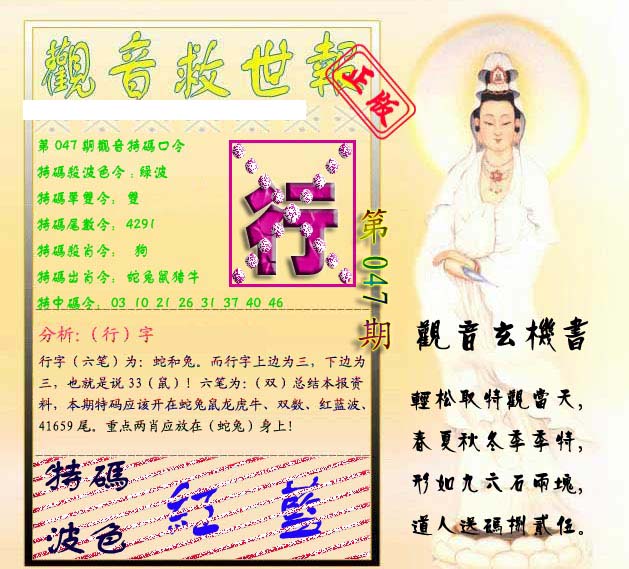 觀音救世報
正版
第047期觀音特碼口令
特碼殺波色令:绿波
特碼單雙令: 雙
特碼尾數令: 4291
特碼殺肖令: 狗
特碼出肖令: 蛇兔鼠猪牛
特中碼令: 03 10 21 26 31 37 40 46
行
第047期
分析:(行)字
行字(六笔)为:蛇和兔。而行字上边为三,下边为
三,也就是说33(鼠)!六笔为:(双)总结本报资
料,本期特码应该开在蛇兔鼠龙虎牛、双数、红蓝波、
41659尾。重点两肖应放在(蛇兔)身上!
特碼
波色
紅 藍
觀音玄機書
輕松取特觀當天,
春夏秋冬季季特,
形如九六石兩塊,
道人送碼捌貳伍。